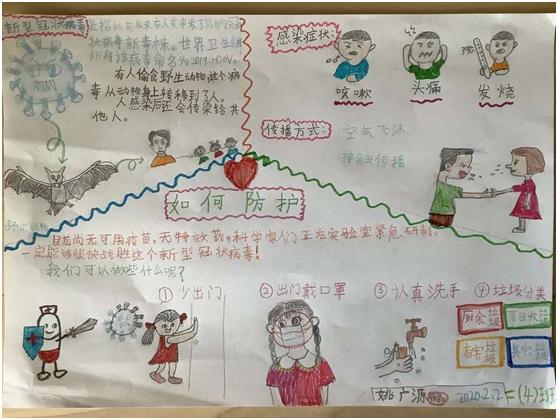 新型冠状病毒是指以前从未在人类中发现的冠
状病毒新毒株。世界卫生组
织将该病毒命名为2019-nCoV。
有人偷食野生动物,这个病
毒从动物身上转移到了人。
人感染后还会传染给其
他人。
感染症状:
咳嗽
头痛
发烧
传播方式:
空气飞沫
接触传播
如何防护
目前尚无可用疫苗,无特效药。科学家们正在实验室紧急研制。
一定能够很快战胜这个新型冠状病毒!
我们可以做些什么呢?
①少出门
②出门戴口罩
③认真洗手
④垃圾分类
厨余垃圾
可回收垃圾
有害垃圾
其它垃圾
姚广源
2020.2.2
二(4)班